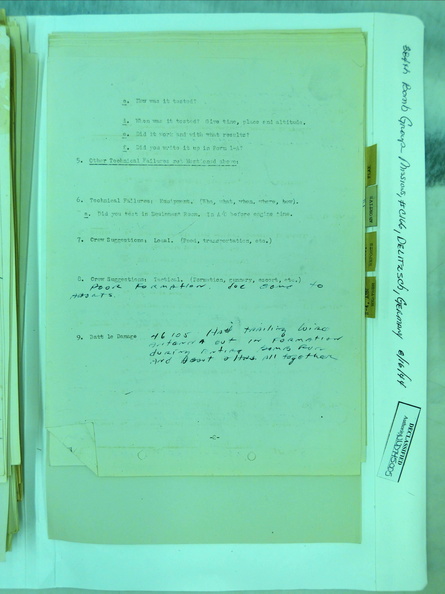 c. How was it tested?
d. When was it tested? Give time, place and altitude.
e. Did it work and with what results?
f. Did you write it up in Form 1A?
5. Other Technical Failures not Mentioned above:
6. Technical Failures: Equipment. (Who, what, when, where, how).
a. Did you test in Equipment Room, in A/C before engine time.
7. Crew Suggestions: Local. (Food, transportation, etc.)
8. Crew Suggestions: Tactical. (Formation, gunnery, escort, etc.)
Poor Formation. due some to
Aborts.
9. Battle Damage
46105 Had trailing wire
Antenna out in Formation
during entire Bomb Run
And about all together
-2-
384th Bomb Group Mission, Delitzsch, Germany 8/16/44
DECLASSIFIED
Authority